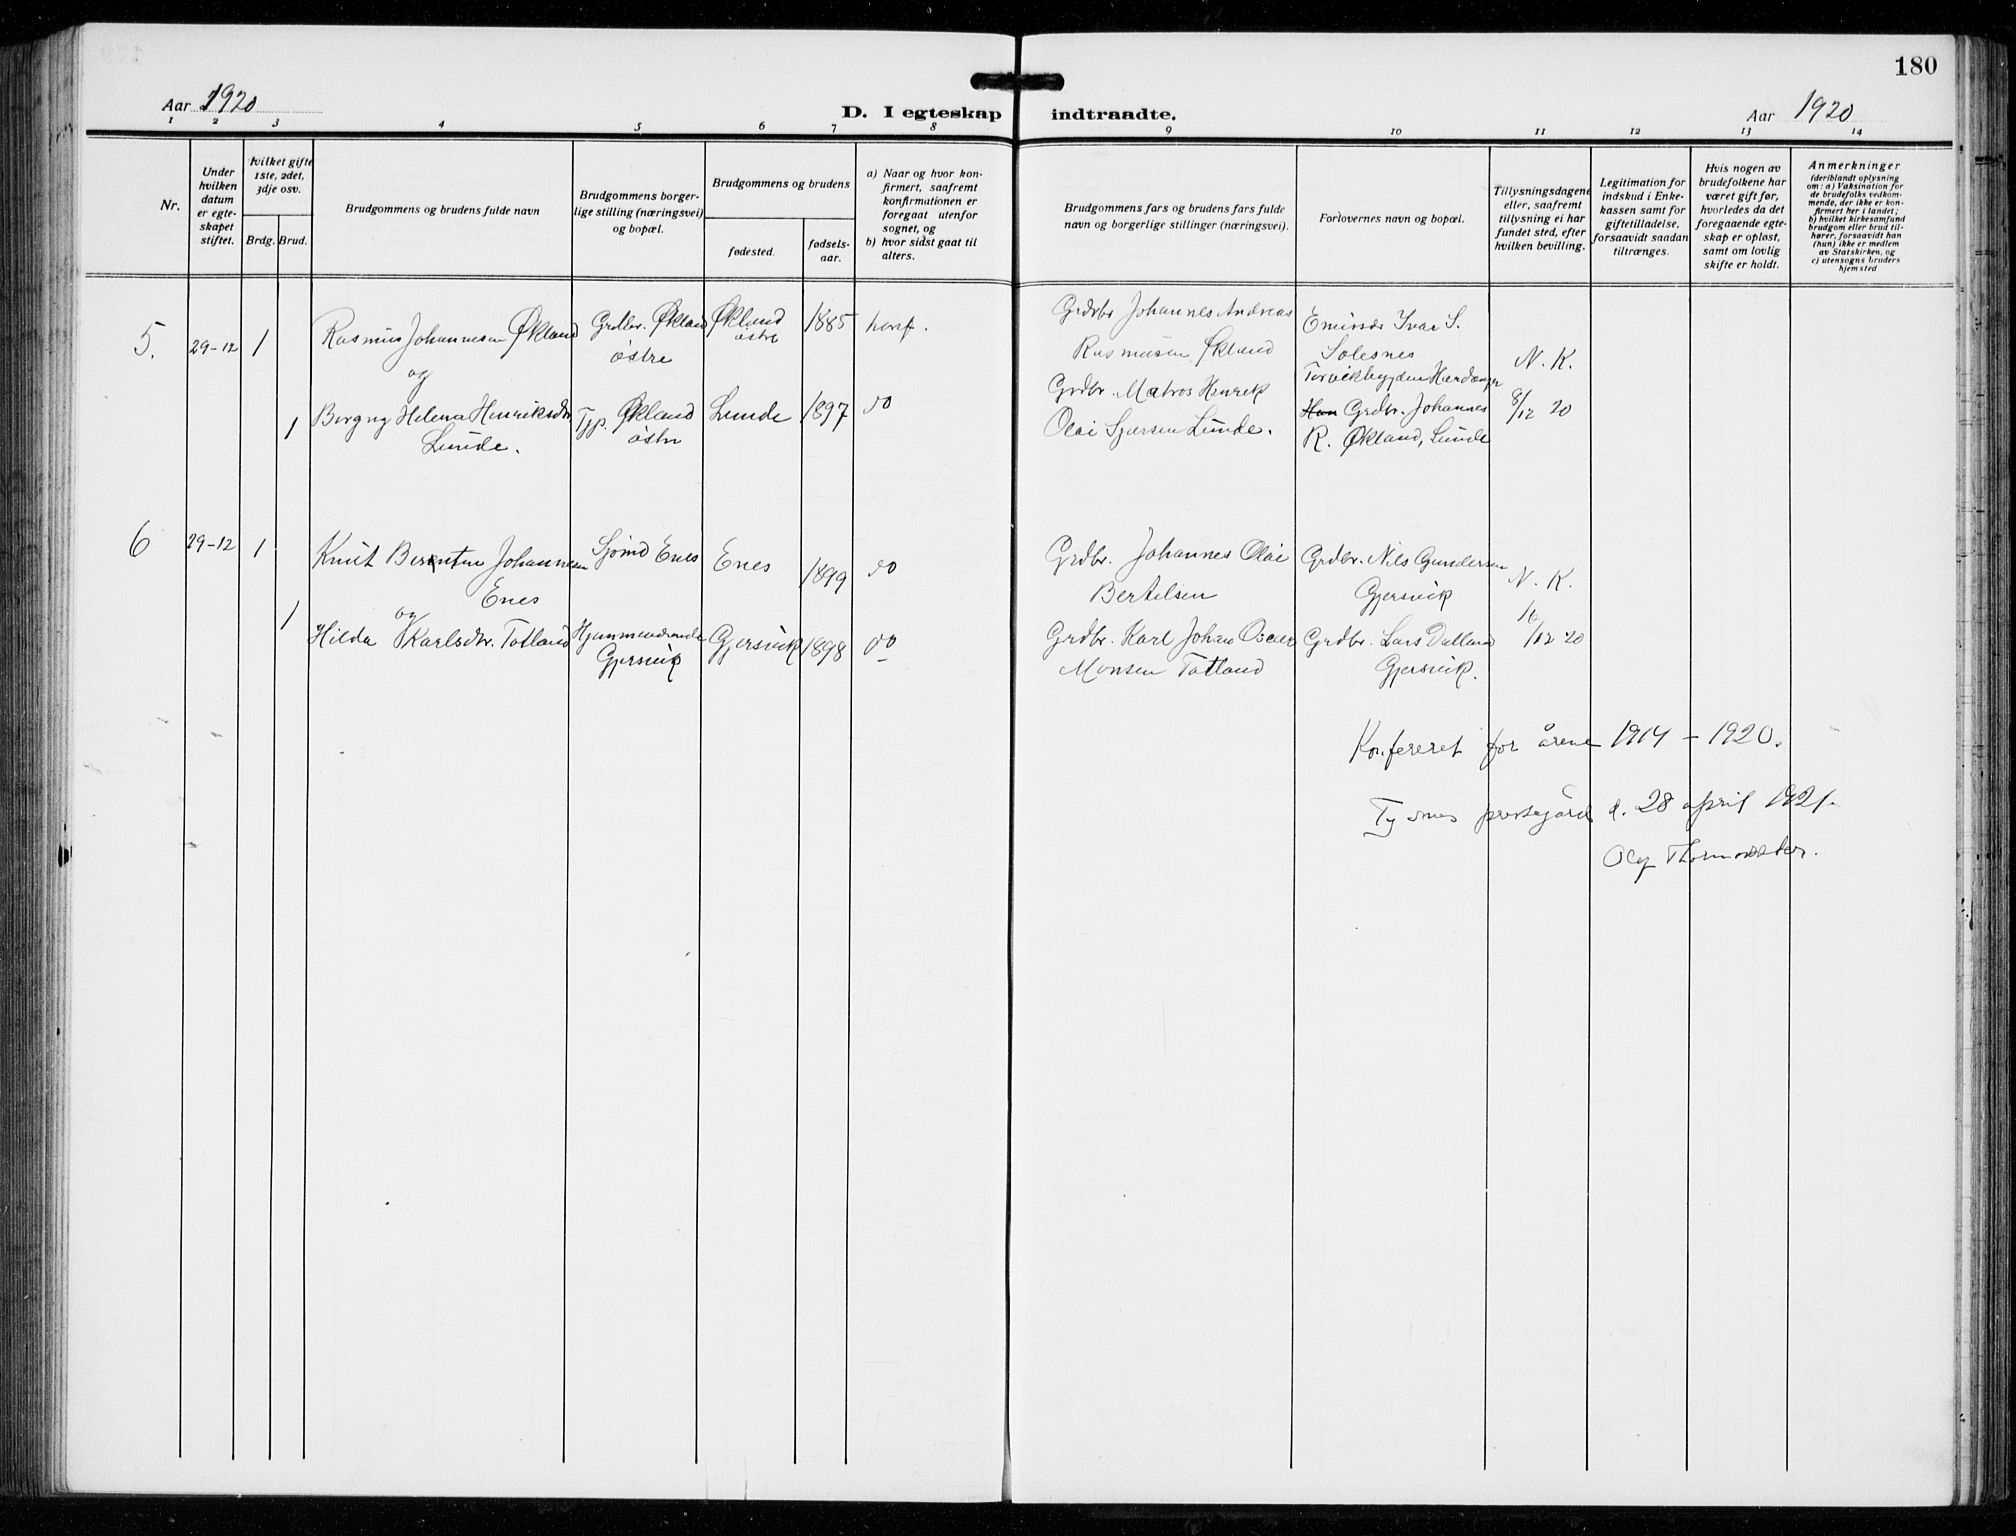 180
Aar 1920
D. I egteskap indtraadte.
Aar 1920
1 2 3 4 5 6 7 8 9 10 11 12 13 14
Nr.
Under
hvilken
datum
er egte-
skapet
stiftet.
hvilket gifte
1ste, 2det,
3dje osv.
Brdg. Brud.
Brudgommens og brudens fulde navn
Brudgommens borger-
lige stilling (næringsvei)
og bopæl.
Brudgommens og brudens
fødested.
fødsels-
aar.
a) Naar og hvor kon-
firmert, saafremt
konfirmationen er
foregaat utenfor
sognet, og
b) hvor sidst gaat til
alters.
Brudgommens fars og brudens fars fulde
navn og borgerlige stillinger (næringsvei).
Forlovernes navn og bopæl.
Tillysningsdagene
eller, saafremt
tillysning ei har
fundet sted, efter
hvilken bevilling.
Legitimation for
indskud i Enke-
kassen samt for
giftetilladelse,
forsaavidt saadan
tiltrænges.
Hvis nogen av
brudefolkene har
været gift før,
hvorledes da det
foregaaende egte-
skap er opløst,
samt om lovlig
skifte er holdt.
Anmerkninger
(deriblandt oplysning
om: a) Vaksination for
de brudefolks vedkom-
mende, der ikke er kon-
firmert her i landet;
b) hvilket kirkesamfund
brudgom eller brud til-
hører, forsaavidt han
(hun) ikke er medlem
av Statskirken, og
c) utensogns bruders
hjemsted
5. 29-12 1 Rasmus Johannesen Økland
og
Grdbr. Økland
østre
Økland
østre
1885 konf.
Grdbr Johannes Andreas
Rasmusen Økland
Ivar S.
Solesnes
Torvikbygden Hardanger
N. K.
8/12 20
1 Borgny Helena Henriksdtr.
Lunde.
Tjp. Økland
østre
Lunde 1897 do
Grdbr. Matros Henrik
Olai Sjursen Lunde.
Han Grdbr. Johannes
R. Økland, Lunde
6 29-12 1 Knut Berentin Johannesen
Enes
og
Sjømd Enes
Enes 1899 do
Grdbr. Johannes Olai
Bertilsen
Grdbr. Nils Gundersen
Gjersvik
N. K.
16/12 20
1 Hilda Karlsdtr. Totland
Hjemmeværende
Gjersvik
Gjersvik 1898 do
Grdbr. Karl Johan Oscar
Monsen Totland
Grdbr. Lars Dalland
Gjersvik.
Konfereret for årene 1914 – 1920.
Tysnes prestegård d. 28 april 1921.